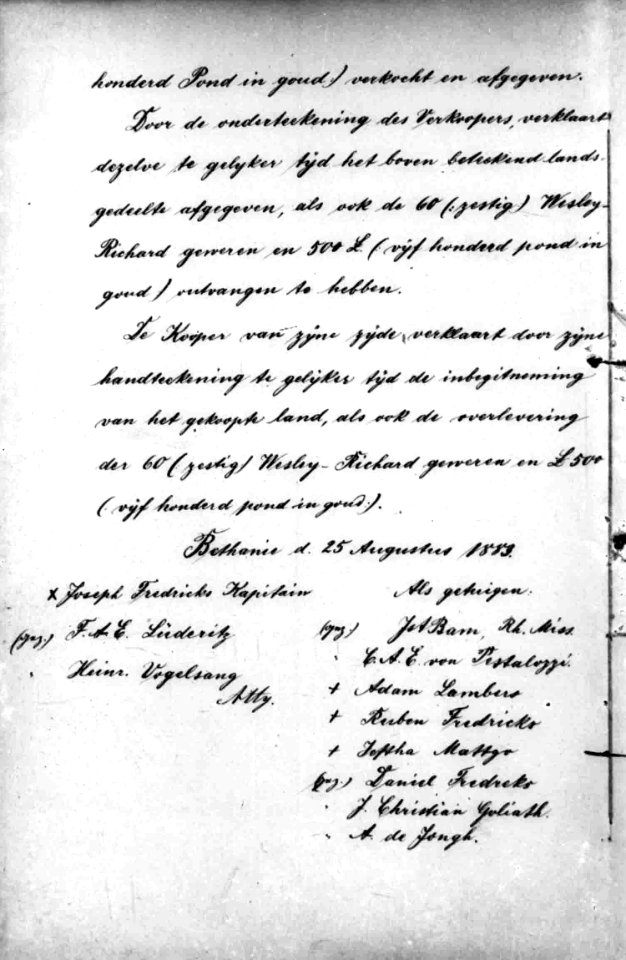 honderd Pond in goud) verkocht en afgegeven.
Door de onderteekening des Verkoopers, verklaart
dezelve te gelyker tyd het boven beteekend lands-
gedeelte afgegeven, als ook de 60 (: zestig) Wesley-
Richard geweren en 500 £. (vyf honderd pond in
goud) ontvangen te hebben.
De Kooper van zyne zyde, verklaart door zyne
handteekening te gelyker tyd de inbezitneming
van het gekoopte land, als ook de overlevering
der 60 (zestig) Wesley-Richard geweren en £ 500
(: vyf honderd pond in goud:).
Bethanie d. 25 Augustus 1883.
x Joseph Fredricks Kapitain
(gez.) F. A. E. Lüderitz
" Heinr. Vogelsang
Atty.
Als getuigen.
(gez.) Joh Bam, Rh. Miss.
" C. A. E. von Pestalozzi.
+ Adam Lambers
+ Ruben Fredricks
+ Jeftha
(gez.) Daniel Fredreks
" J. Christian Goliath.
" A. de Jongh.